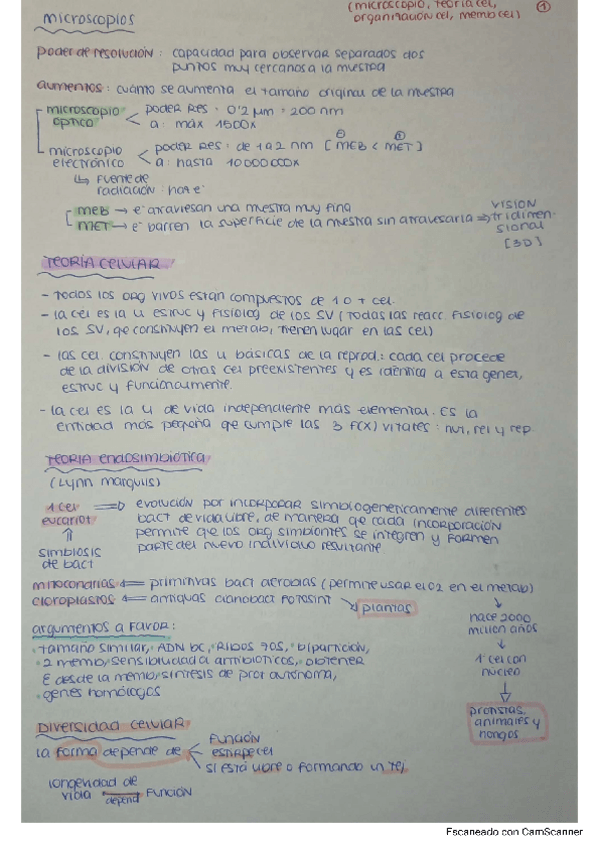 (microscopio, teoría cel,
organización cel, memb cel)
1
microscopios
poder de resolución: capacidad para observar separados dos
puntos muy cercanos a la muestra
aumentos: cuánto se aumenta el tamaño original de la muestra
microscopio
óptico
poder res = 0'2 µm = 200 nm
a: máx 1500x
microscopio
electrónico
poder res: de 1 a 2 nm [MEB < MET]
a: hasta 1000000x
↳ fuente de
radiación: haz e⁻
MEB → e⁻ atraviesan una muestra muy fina
MET → e⁻ barren la superficie de la muestra sin atravesarla ⇒ visión
tridimen-
sional
[3D]
TEORÍA CELULAR
- Todos los org vivos están compuestos de 1 o + cel.
- la cel es la u estruc y fisiolog de los SV (Todas las reacc. fisiolog de
los SV, qe constituyen el metab, tienen lugar en las cel)
- las cel. constituyen las u básicas de la reprod.: cada cel procede
de la división de otras cel preexistentes y es idéntica a esta genet,
estruc y funcionalmente.
- la cel es la u de vida independiente más elemental. Es la
entidad más pequeña qe cumple las 3 f(x) vitales: nut, rel y rep.
TEORÍA endosimbiótica
(Lynn Margulis)
1 cel
eucariot
⇑
simbiosis
de bact
⇒ evolución por incorporar simbiogeneticamente diferentes
bact de vida libre, de manera qe cada incorporación
permite qe los org simbiontes se integren y formen
parte del nuevo individuo resultante
mitocondrias ⇐ primitivas bact aerobias (permite usar el O2 en el metab)
cloroplastos ⇐ antiguas cianobact fotosint
→ plantas
hace 2000
millon años
↓
1ª cel con
nucleo
↓
protistas,
animales y
hongos
argumentos a favor:
· tamaño similar, ADN bc, Ribos 70s, bipartición,
· 2 memb, sensibilidad a antibioticos, obtener
E desde la memb, síntesis de prot autónoma,
· genes homólogos
Diversidad celular
la forma depende de
función
estirpe cel
si está libre o formando un tej
longevidad de
vida
depend
función
Escaneado con CamScanner